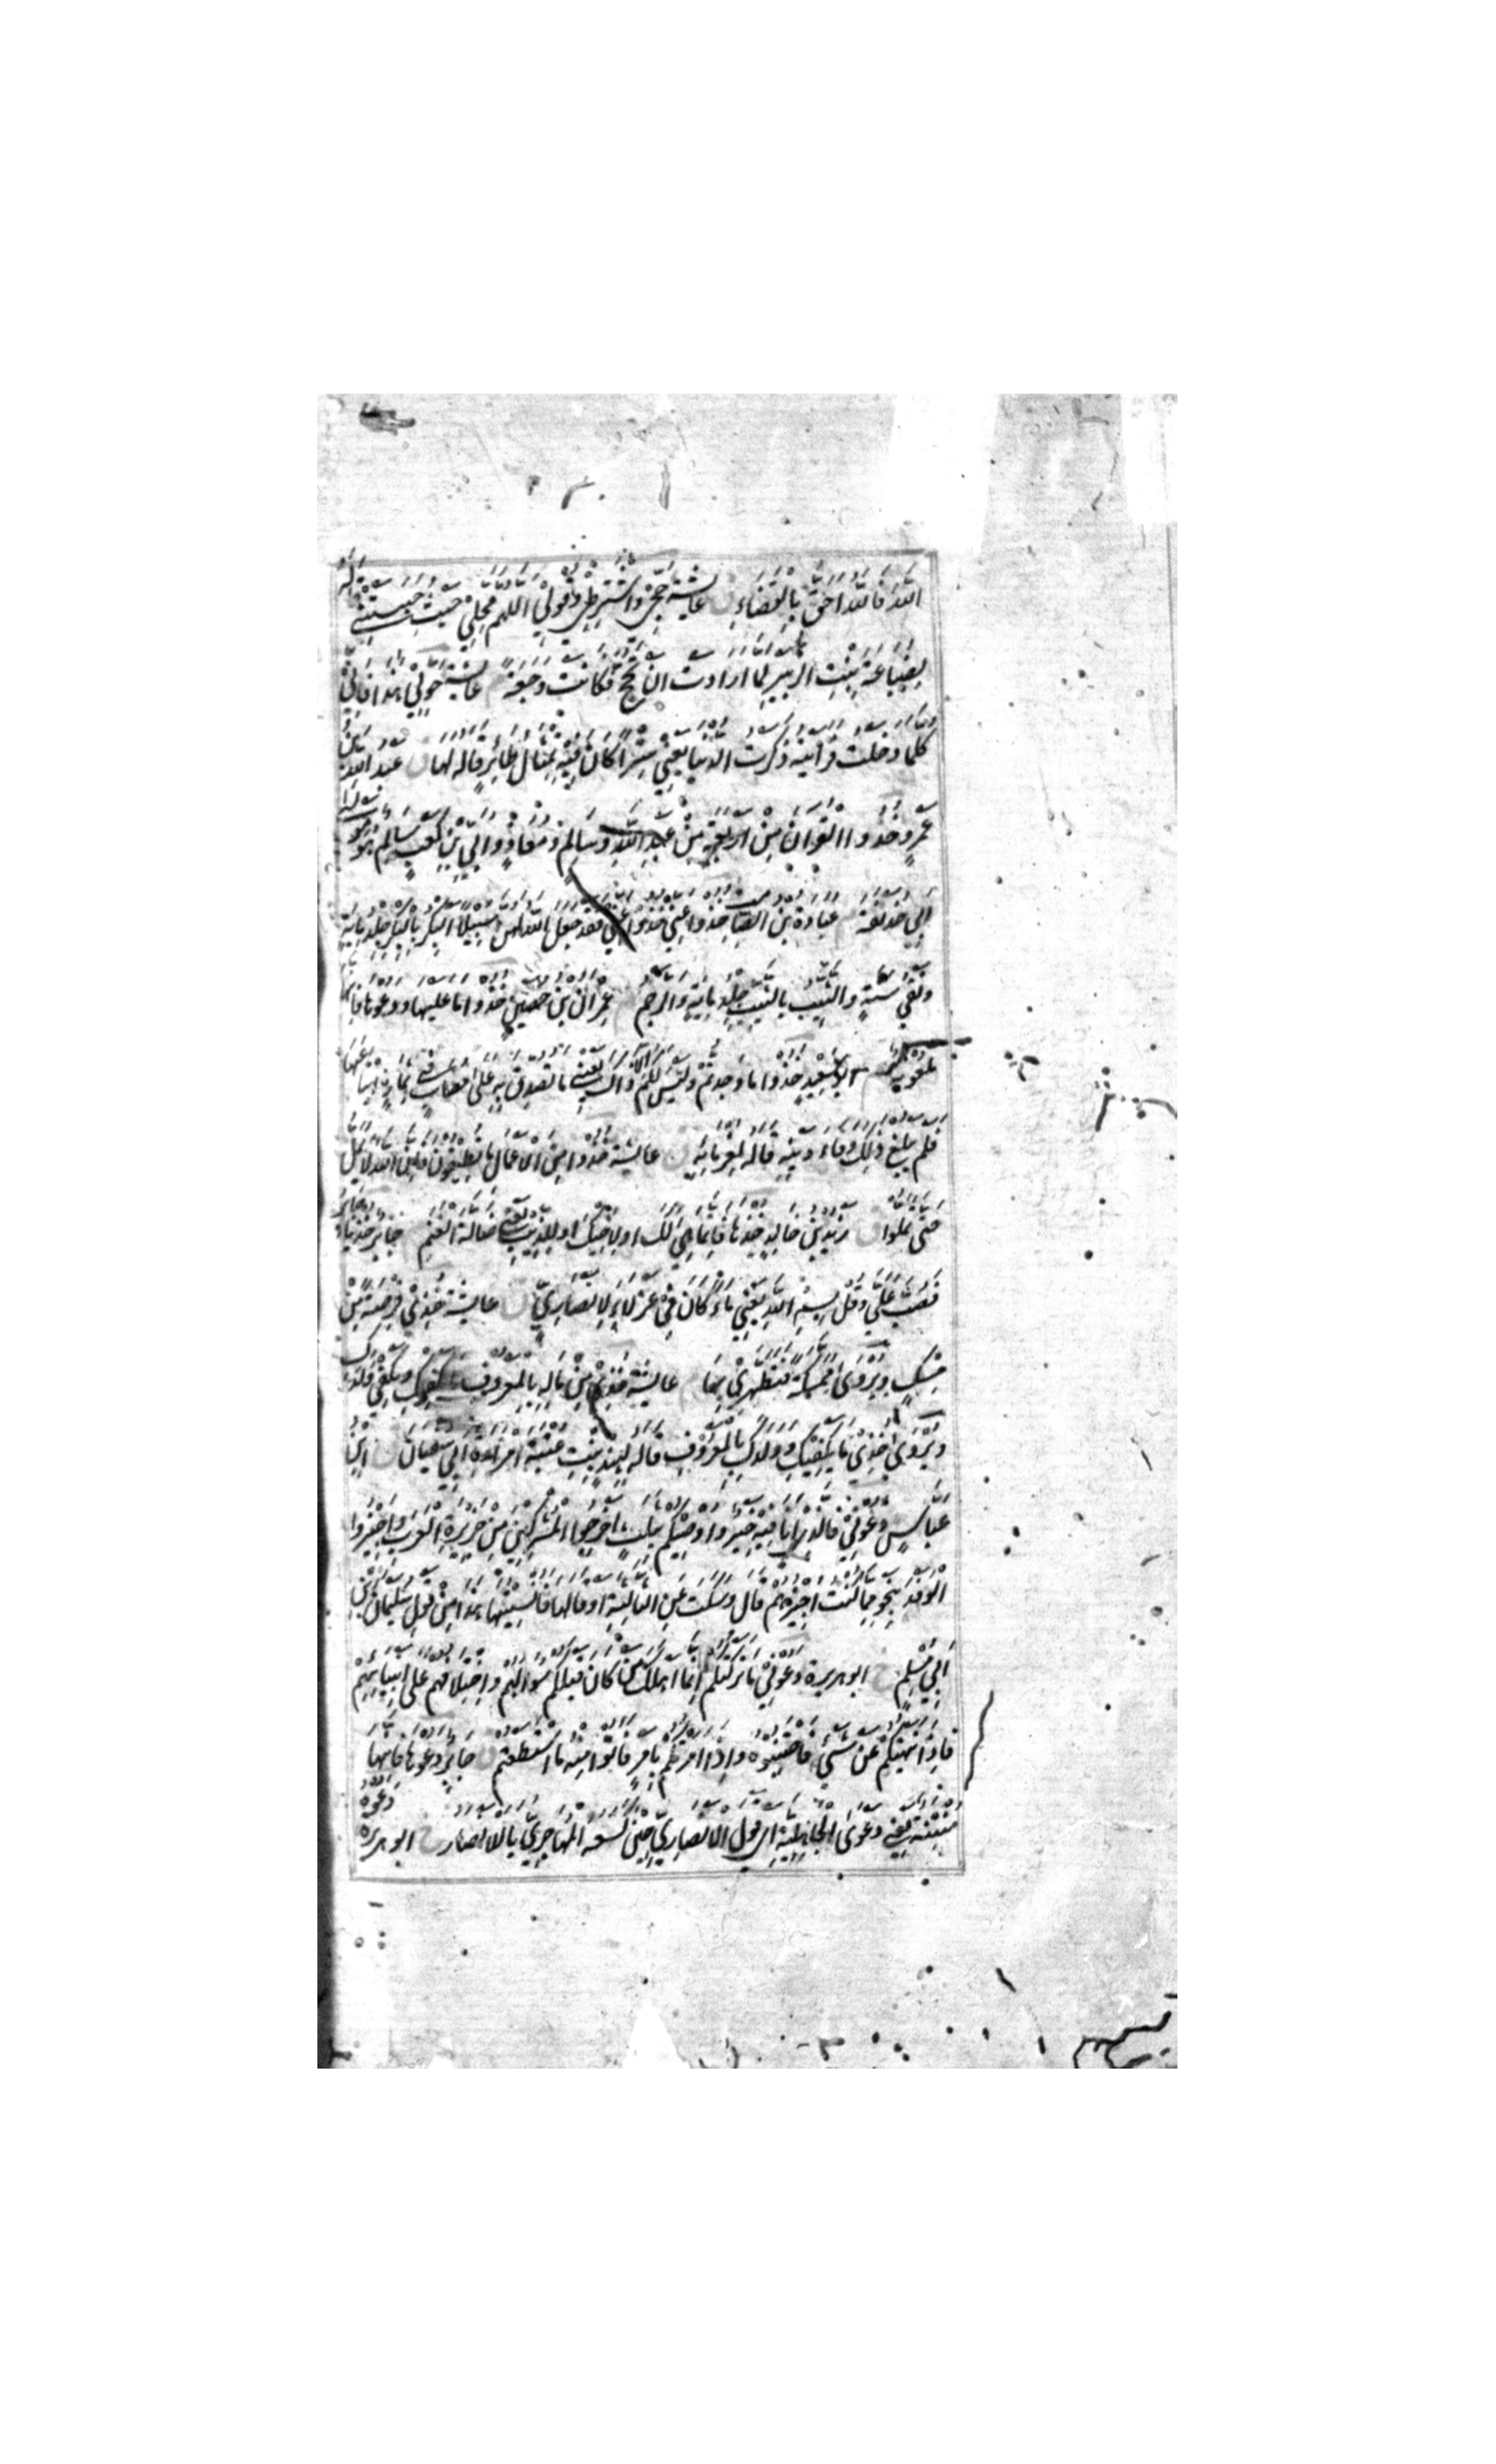 الله فالله احق بالقضاء ق عايشة حجي واشترطي وقولي اللهم محلي حيث حبستني قاله
لضباعة بنت الزبير لما ارادت ان تحج فكانت وجعة م عايشة حولي هذا فاني
كلما دخلت فرأيته ذكرت الدنيا يعني سترا كان فيه تمثال طائر قاله لها ق عبد الله بن
عمرو خذوا القرآن من اربعة من عبد الله وسالم ومعاذ وابي بن كعب سالم هو مولى
ابي حذيفة م عبادة بن الصامت خذوا عني خذوا عني فقد جعل الله لهن سبيلا البكر بالبكر جلد مائة
ونفي سنة والثيب بالثيب جلد مائة والرجم م عمران بن حصين خذوا ما عليها ودعوها فانها
ملعونة م ابو سعيد خذوا ما وجدتم وليس لكم الا ذلك يعني ما تصدق به على مصاب في ثمار ابتاعها
فلم يبلغ ذلك وفاء دينه قاله لغرمائه ق عايشة خذوا من الاعمال ما تطيقون فان الله لا يمل
حتى تملوا ق زيد بن خالد خذها فانما هي لك او لاخيك او للذئب يعني ضالة الغنم م جابر خذ يا جابر
فصب علي وقل بسم الله يعني ماء كان في عزلاء لانصاري ق عايشة خذي فرصة من
مسك ويروى ممسكة فتطهري بها م عايشة خذي من ماله بالمعروف ما يكفيك ويكفي ولدك
ويروى خذي ما يكفيك وولدك بالمعروف قاله لهند بنت عتبة امراءة ابي سفيان ق ابن
عباس دعوني فالذي انا فيه خير واوصيكم بثلث اخرجوا المشركين من جزيرة العرب واجيزوا
الوفد بنحو ما كنت اجيزهم قال وسكت عن الثالثة او قالها فانسيتها هذا من قول سليمان بن
ابي مسلم خ ابو هريرة دعوني ما تركتكم انما اهلك من كان قبلكم سوالهم واختلافهم على انبيائهم
فاذا نهيتكم عن شئ فاجتنبوه واذا امرتكم بامر فاتوا منه ما استطعتم ق جابر دعوها فانها
منتنة يعني دعوى الجاهلية اي قول الانصاري حين كسعه المهاجري يا للانصار خ ابو هريره دعوه